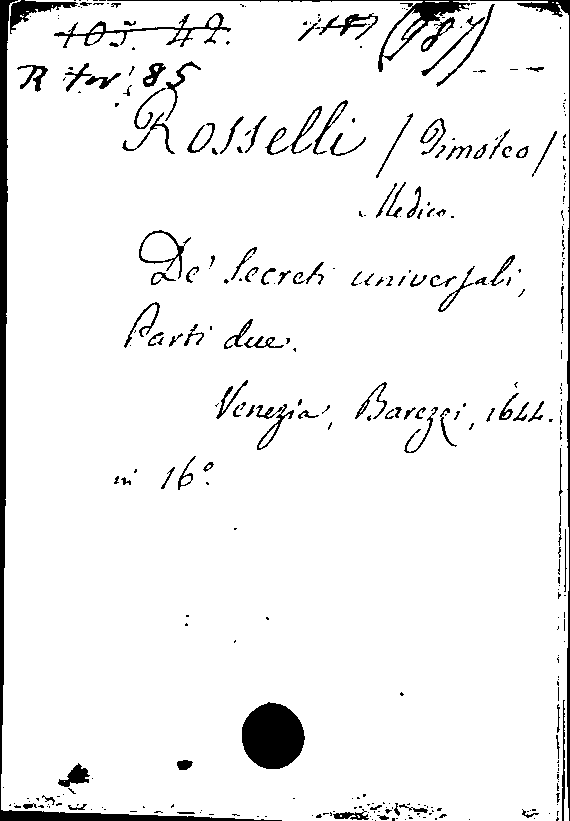 105. 42. 7187 (987)
R tor! 85
Rosselli / Timoteo /
Medico.
De' Secreti universali,
Parti due.
Venezia, Barezzi, 1644.
in 16°.